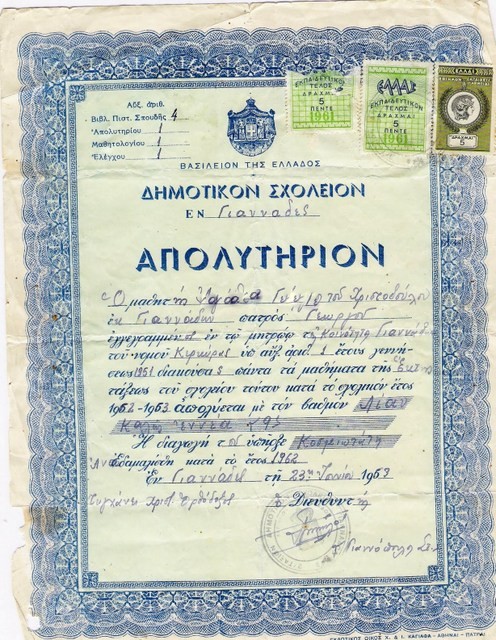 Αὔξ. ἀριθ.
Βιβλ. Πιστ. Σπουδῆς 4
Ἀπολυτηρίου 1
Μαθητολογίου 1
Ἐλέγχου 1
ΕΚΠΑΙΔΕΥΤΙΚΟΝ
ΤΕΛΟΣ
ΔΡΑΧΜΑΙ
5
ΠΕΝΤΕ
1961
ΕΛΛΑΣ
ΕΚΠΑΙΔΕΥΤΙΚΟΝ
ΤΕΛΟΣ
ΔΡΑΧΜΑΙ
5
ΠΕΝΤΕ
1961
ΕΛΛΑΣ
ΔΡΑΧΜΑΙ
5
ΒΑΣΙΛΕΙΟΝ ΤΗΣ ΕΛΛΑΔΟΣ
ΔΗΜΟΤΙΚΟΝ ΣΧΟΛΕΙΟΝ
ΕΝ Γιαννάδες
ΑΠΟΛΥΤΗΡΙΟΝ
Ὁ μαθητὴς τοῦ Χριστοδούλου
ἐκ Γιαννάδων πατρὸς Γεωργίου
ἐγγεγραμμένος ἐν τῷ μητρώῳ τῆς Κοινότητος
τοῦ νομοῦ Κερκύρας ὑπ' αὔξ. ἀριθ. 1 ἔτους γεννή-
σεως 1951 διακούσας πάντα τὰ μαθήματα τῆς Ἕκτης
τάξεως τοῦ σχολείου τούτου κατὰ τὸ σχολικὸν ἔτος
1962-1963 ἀπολύεται μὲ τὸν βαθμὸν Λίαν
Καλῶς ἐννέα
Ἡ διαγωγή τοῦ ὑπῆρξε Κοσμιωτάτη
κατὰ τὸ ἔτος 1962
Ἐν Γιαννάδες τῇ 23ῃ Ἰουνίου 1963
Τυγχάνει Χριστ. Ὀρθόδοξος
Ὁ Διευθυντὴς
ΕΚΔΟΤΙΚΟΣ ΟΙΚΟΣ Χ. & Ι. ΚΑΓΙΑΦΑ - ΑΘΗΝΑΙ - ΠΑΤΡΑΙ